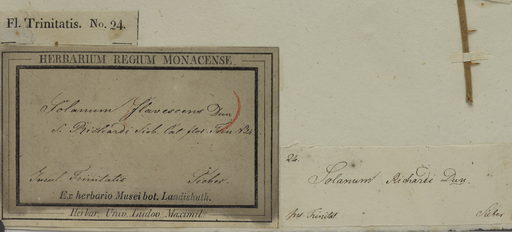 Fl. Trinitatis. No. 24.
HERBARIUM REGIUM MONACENSE.
Solanum flavescens Dun
S. Richardi Sieb. Cat. flor. Trin. N. 24.
Insul. Trinitatis Sieber.
Ex herbario Musei bot. Landishuth.
Herbar. Univ. Ludov. Maximil.
24.
Solanum Richardi Dun.
Ins. Trinitat. Sieber